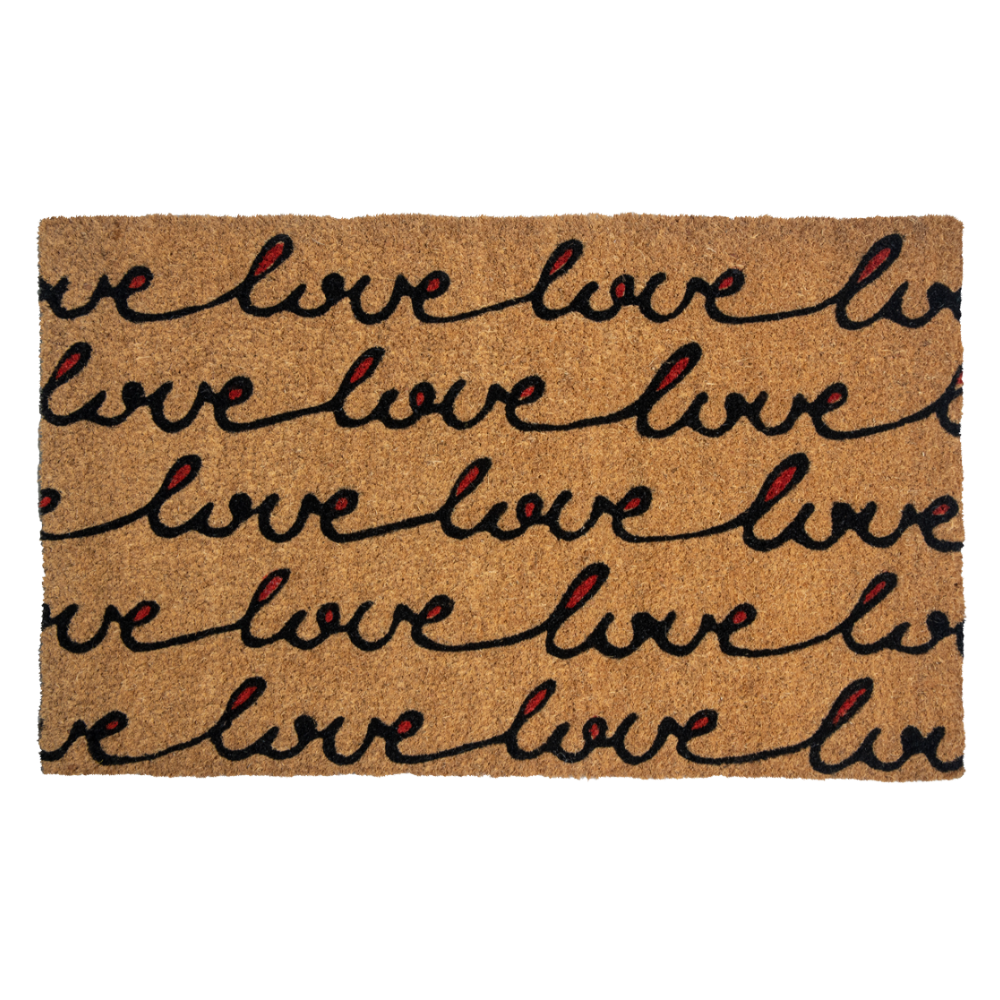 ve love love lo
love love love l
e love love love
ve love love lo
ve love love lov